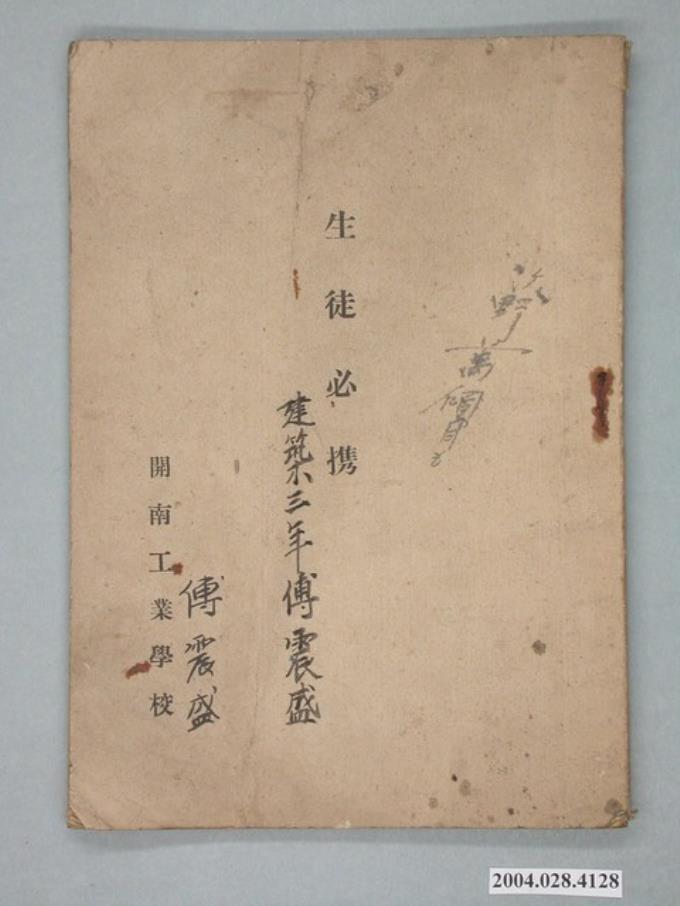 生徒必携
建築三年傅震盛
傅震盛
開南工業學校
2004.028.4128